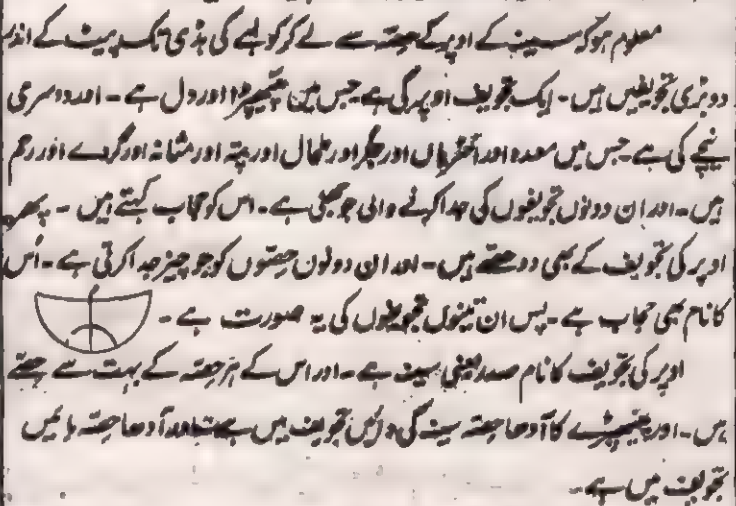 معلوم ہو کہ سینہ کے اوپر کے حصّہ سے لے کر کولہے کی ہڈی تک پیٹ کے اندر
دو بڑی تجویفیں ہیں۔ ایک تجویف اوپر کی ہے جس میں پھیپھڑا اور دل ہے۔ اور دوسری
نیچے کی ہے جس میں معدہ اور انتڑیاں اور جگر اور طحال اور پتہ اور مثانہ اور گردے اور رحم
ہیں۔ اور ان دونوں تجویفوں کی جدا کرنے والی جو جھلی ہے۔ اس کو حجاب کہتے ہیں۔ پھر
اوپر کی تجویف کے بھی دو حصّے ہیں۔ اور ان دونوں حصّوں کو جو چیز جدا کرتی ہے۔ اُس
کا نام بھی حجاب ہے۔ پس ان تینوں تجویفوں کی یہ صورت ہے۔
اوپر کی تجویف کا نام صدر یعنی سینہ ہے۔ اور اس کے ہر حصّہ کے بہت سے حصّے
ہیں۔ اور پھیپھڑے کا آدھا حصّہ سینہ کی دائیں تجویف میں ہے اور آدھا حصّہ بائیں
تجویف میں ہے۔